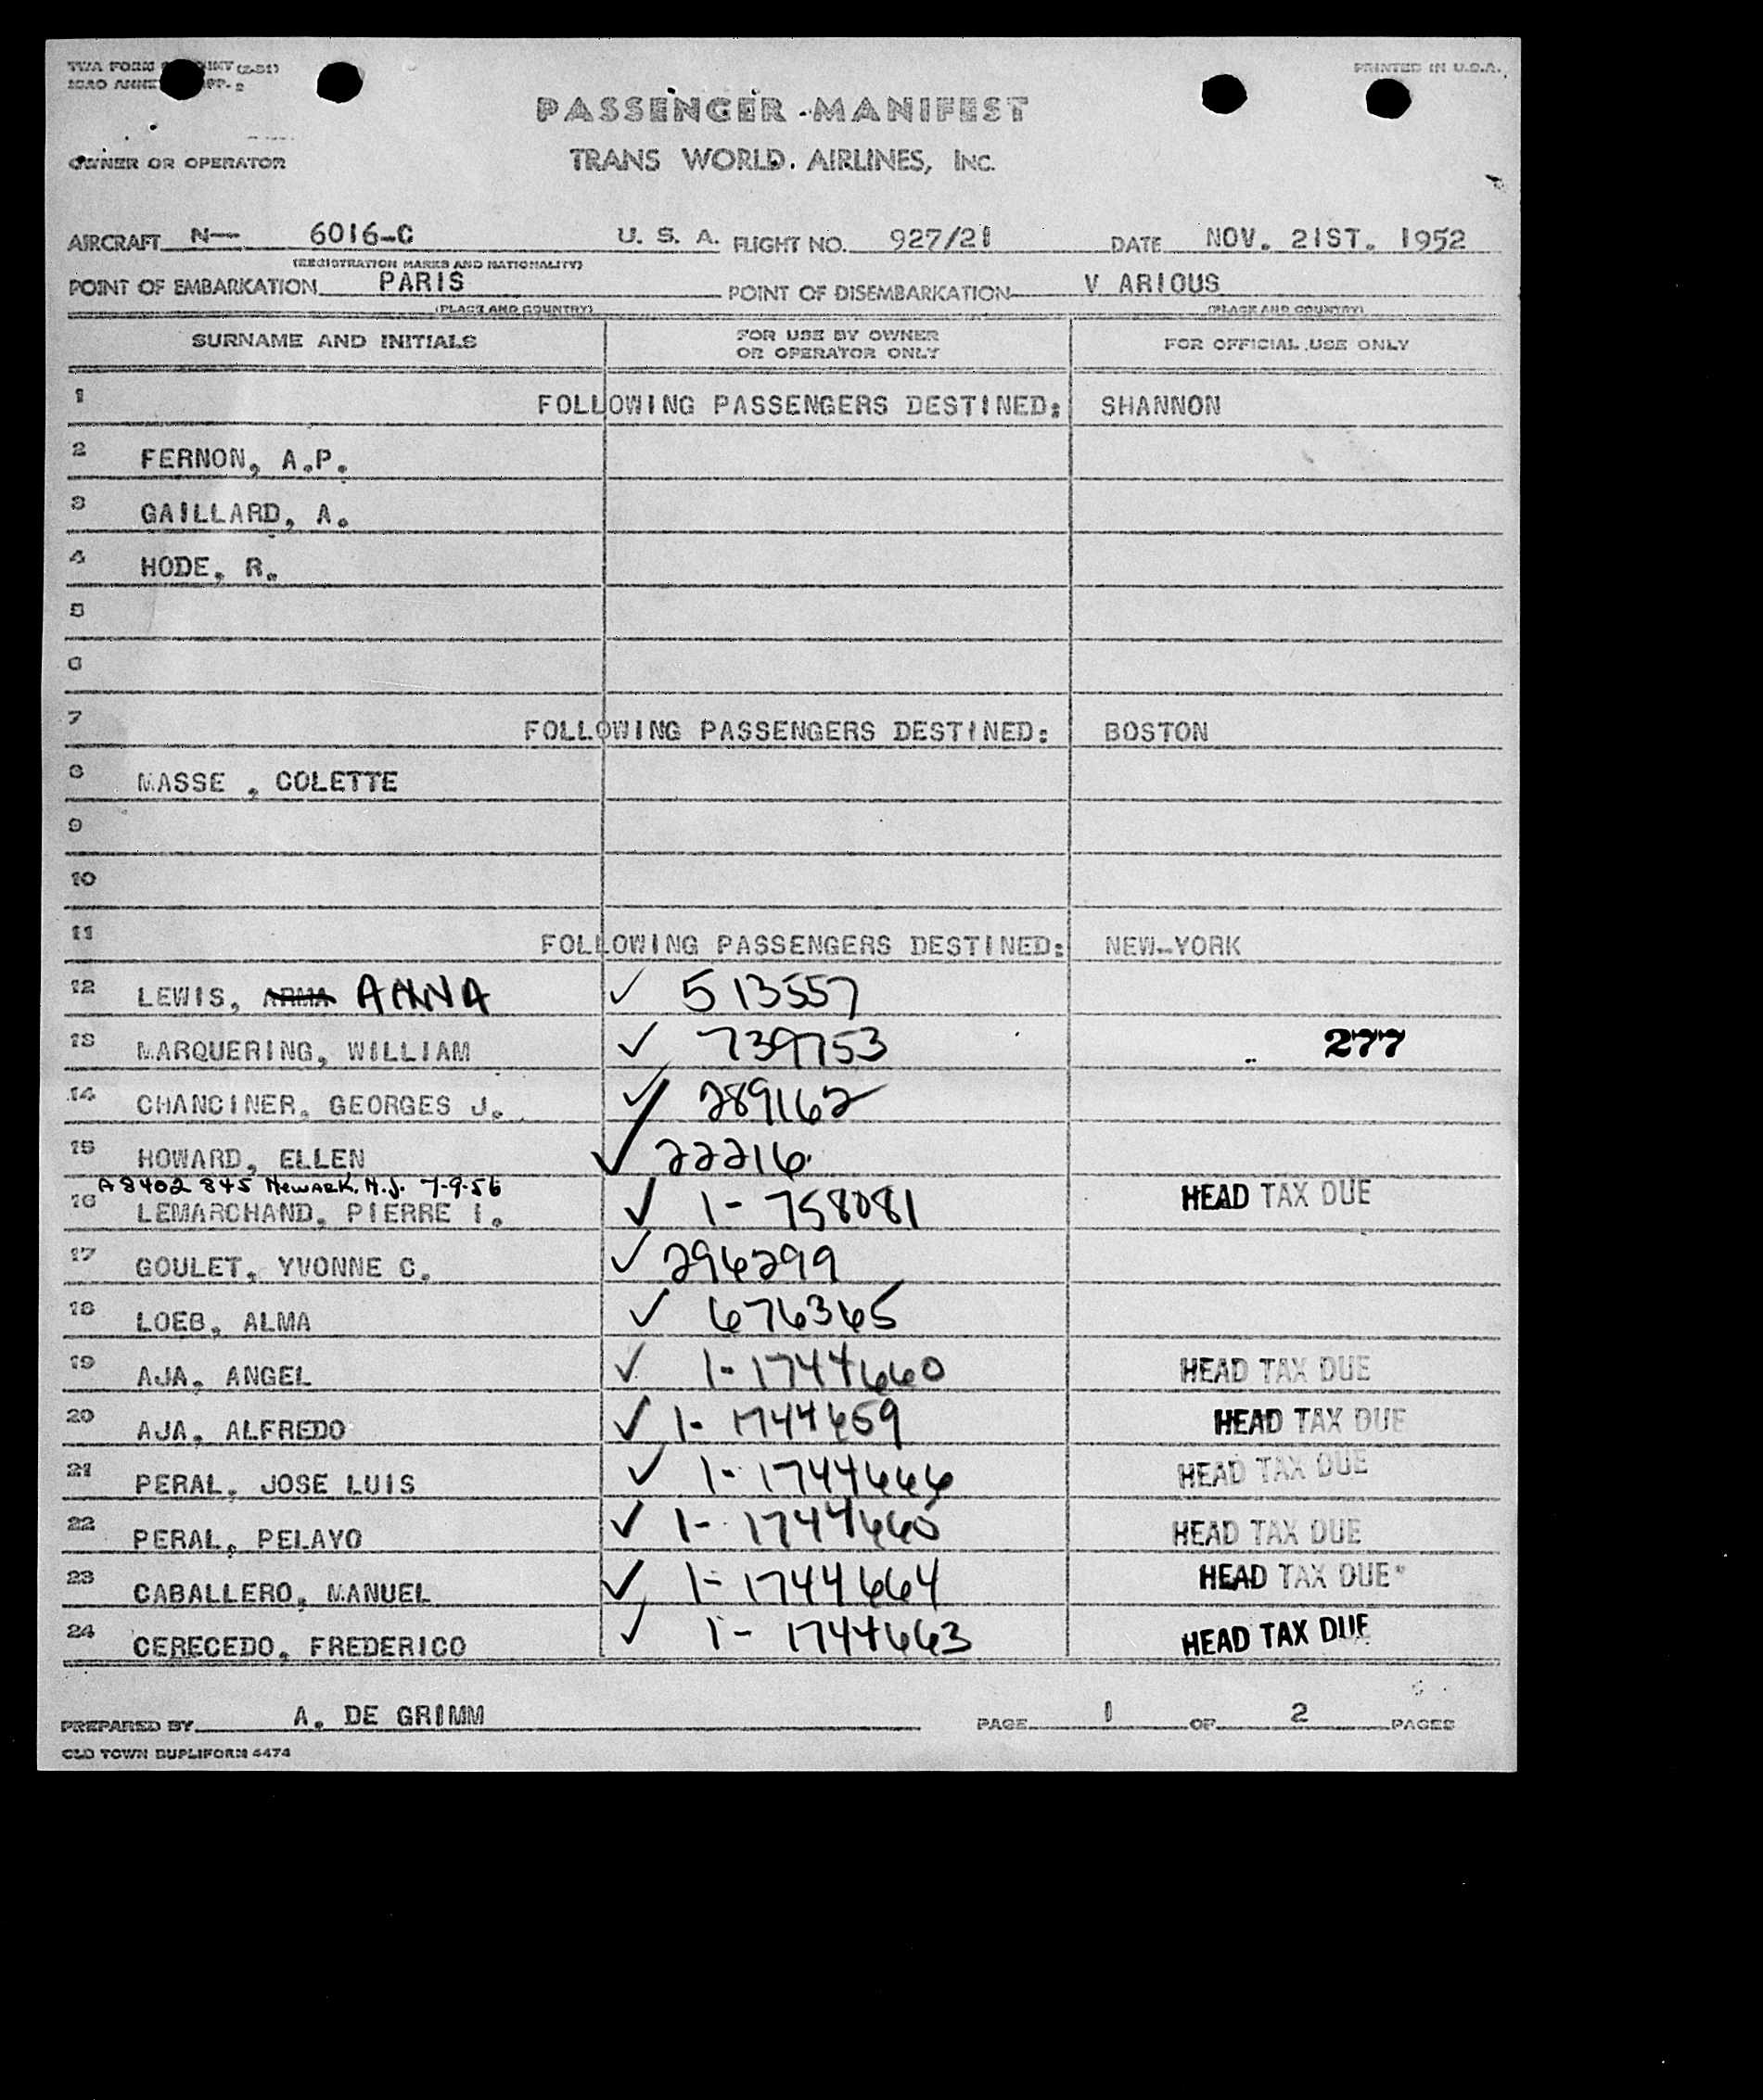 TWA FORM (2-51)
ICAO ANNEX APP. 2
PRINTED IN U.S.A.
PASSENGER MANIFEST
OWNER OR OPERATOR TRANS WORLD AIRLINES, INC.
AIRCRAFT N— 6016-C U. S. A. FLIGHT NO. 927/21 DATE NOV. 21ST. 1952
(REGISTRATION MARKS AND NATIONALITY)
POINT OF EMBARKATION PARIS POINT OF DISEMBARKATION V ARIOUS
(PLACE AND COUNTRY) (PLACE AND COUNTRY)
SURNAME AND INITIALS FOR USE BY OWNER OR OPERATOR ONLY FOR OFFICIAL USE ONLY
1 FOLLOWING PASSENGERS DESTINED: SHANNON
2 FERNON, A.P.
3 GAILLARD, A.
4 HODE, R.
5
6
7 FOLLOWING PASSENGERS DESTINED: BOSTON
8 MASSE , COLETTE
9
10
11 FOLLOWING PASSENGERS DESTINED: NEW-YORK
12 LEWIS, ARMA ANNA ✓ 513557
13 MARQUERING, WILLIAM ✓ 739753 277
14 CHANCINER, GEORGES J. ✓ 289162
15 HOWARD, ELLEN ✓ 22216
A8402 845 Newark. N.J. 7-9-56
16 LEMARCHAND, PIERRE I. ✓ 1- 758081 HEAD TAX DUE
17 GOULET, YVONNE C. ✓ 296299
18 LOEB, ALMA ✓ 676365
19 AJA, ANGEL ✓ 1-1744660 HEAD TAX DUE
20 AJA, ALFREDO ✓ 1- 1744659 HEAD TAX DUE
21 PERAL, JOSE LUIS ✓ 1-1744666 HEAD TAX DUE
22 PERAL, PELAYO ✓ 1- 1744660 HEAD TAX DUE
23 CABALLERO, MANUEL ✓ 1-1744664 HEAD TAX DUE
24 CERECEDO, FREDERICO ✓ 1- 1744663 HEAD TAX DUE
PREPARED BY A. DE GRIMM PAGE 1 OF 2 PAGES
OLD TOWN DUPLIFORM 4474